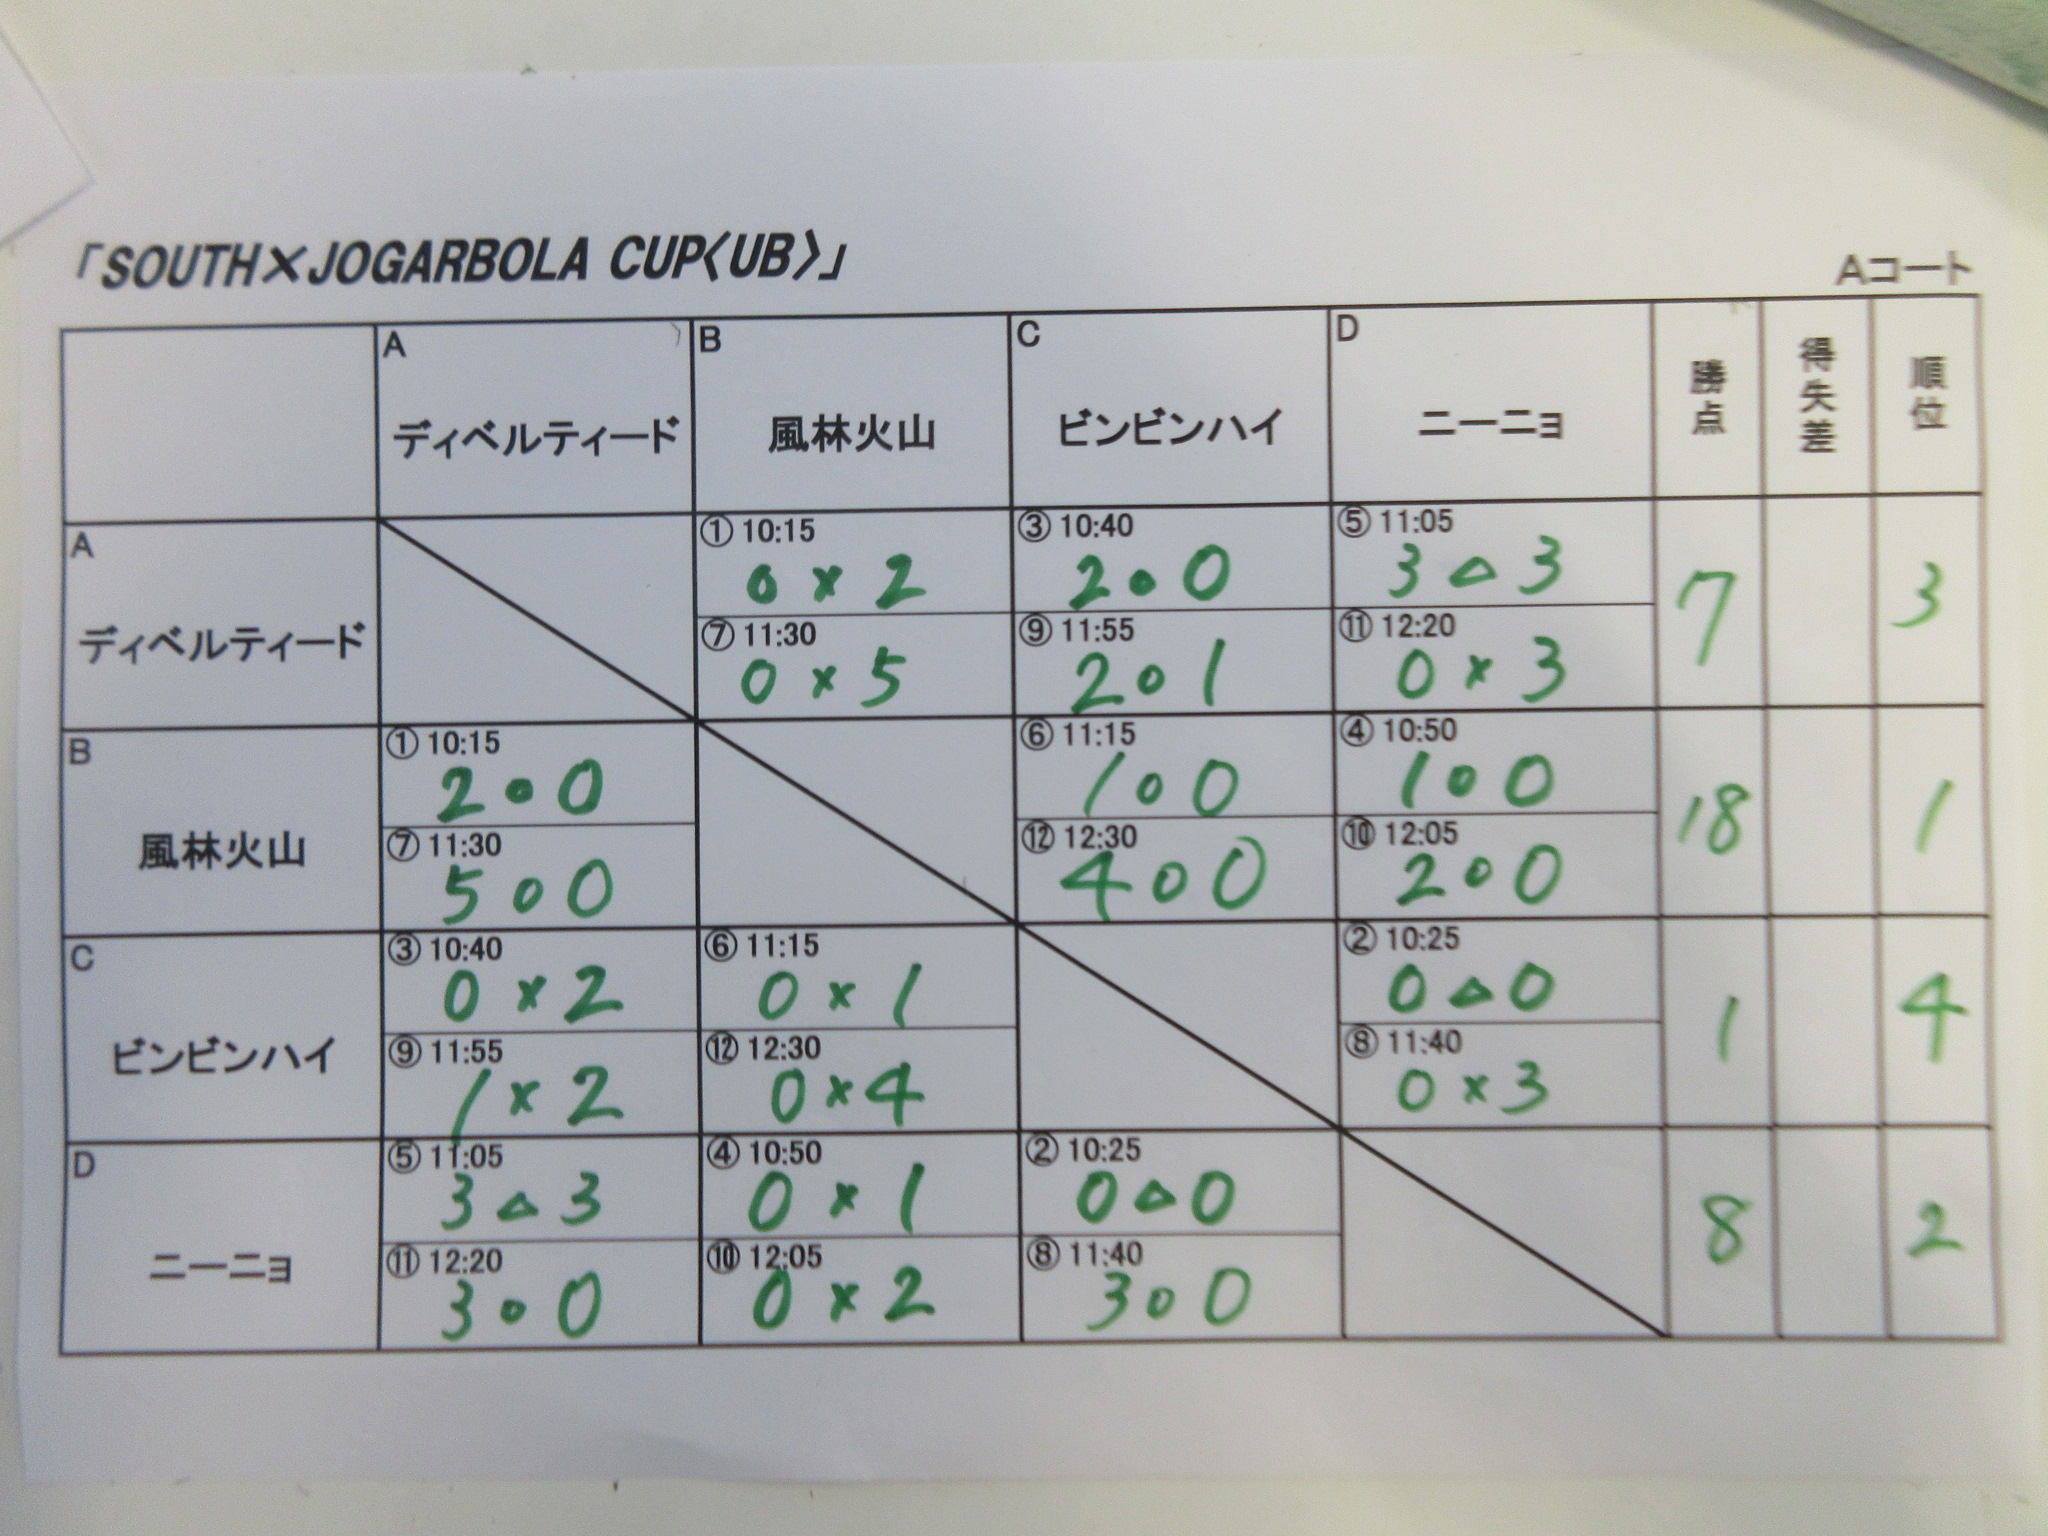 「SOUTH×JOGARBOLA CUP〈UB〉」
Aコート
A ディベルティード
B 風林火山
C ビンビンハイ
D ニーニョ
勝点
得失差
順位
A ディベルティード
① 10:15 0 × 2
③ 10:40 2 ○ 0
⑤ 11:05 3 △ 3
⑦ 11:30 0 × 5
⑨ 11:55 2 ○ 1
⑪ 12:20 0 × 3
7
3
B 風林火山
① 10:15 2 ○ 0
⑥ 11:15 1 ○ 0
④ 10:50 1 ○ 0
⑦ 11:30 5 ○ 0
⑫ 12:30 4 ○ 0
⑩ 12:05 2 ○ 0
18
1
C ビンビンハイ
③ 10:40 0 × 2
⑥ 11:15 0 × 1
② 10:25 0 △ 0
⑨ 11:55 1 × 2
⑫ 12:30 0 × 4
⑧ 11:40 0 × 3
1
4
D ニーニョ
⑤ 11:05 3 △ 3
④ 10:50 0 × 1
② 10:25 0 △ 0
⑪ 12:20 3 ○ 0
⑩ 12:05 0 × 2
⑧ 11:40 3 ○ 0
8
2